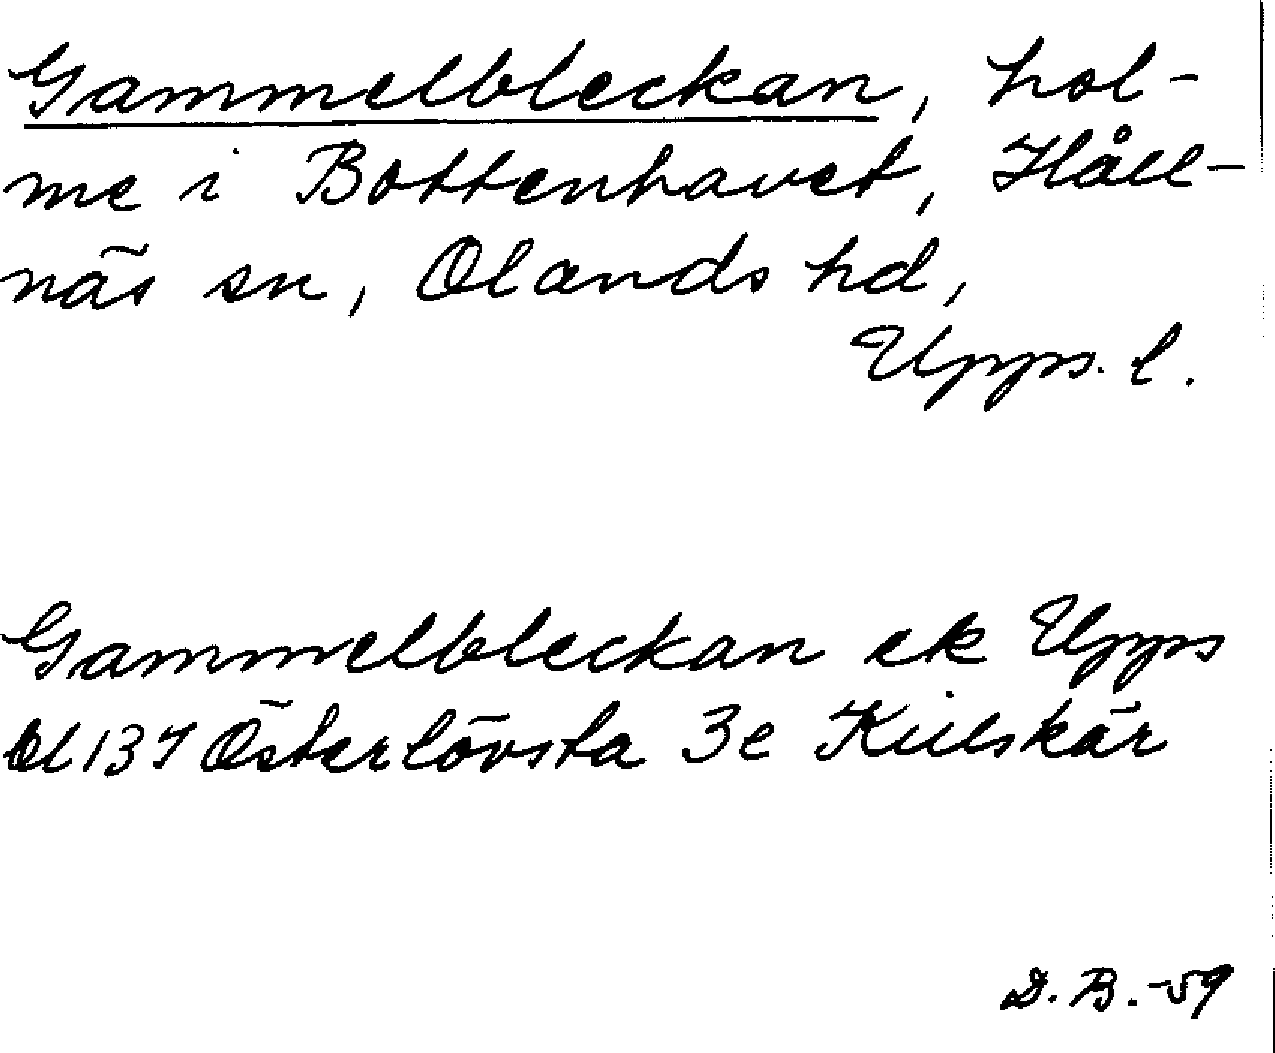 Gammelbleckan, hol-
me i Bottenhavet, Håll-
näs sn, Olands hd,
Upps. l.
Gammelbleckan ek Upps
Bl 137 Österlövsta 3e Killskär
D. B. -59